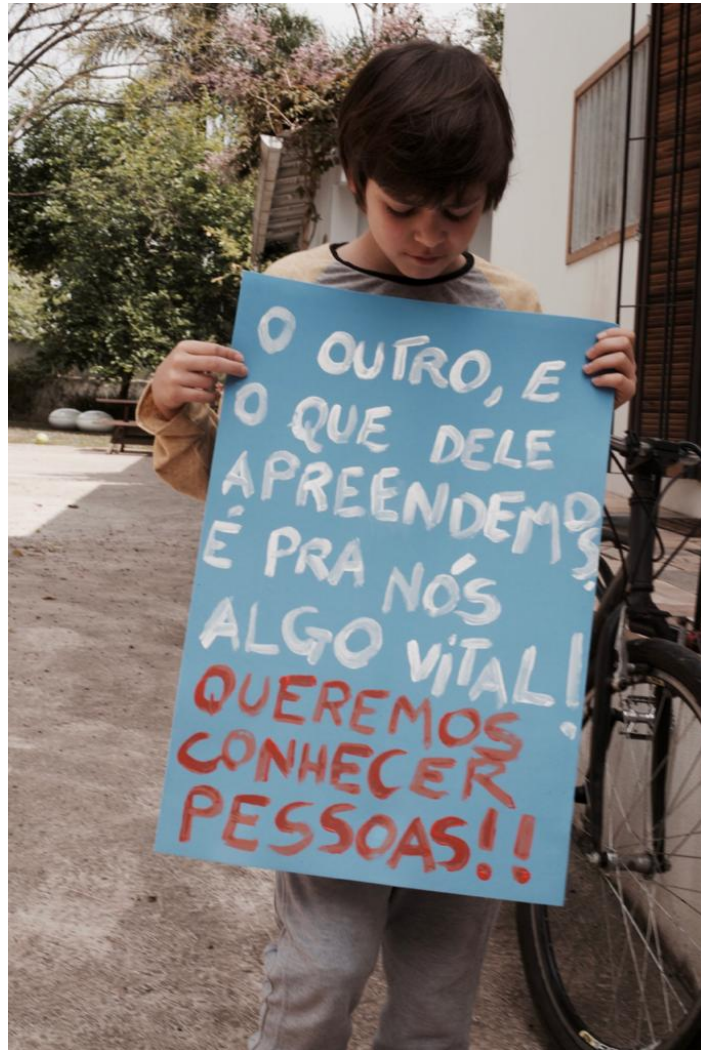 O OUTRO, E
O QUE DELE
APREENDEMOS
É PRA NÓS
ALGO VITAL!
QUEREMOS
CONHECER
PESSOAS!!